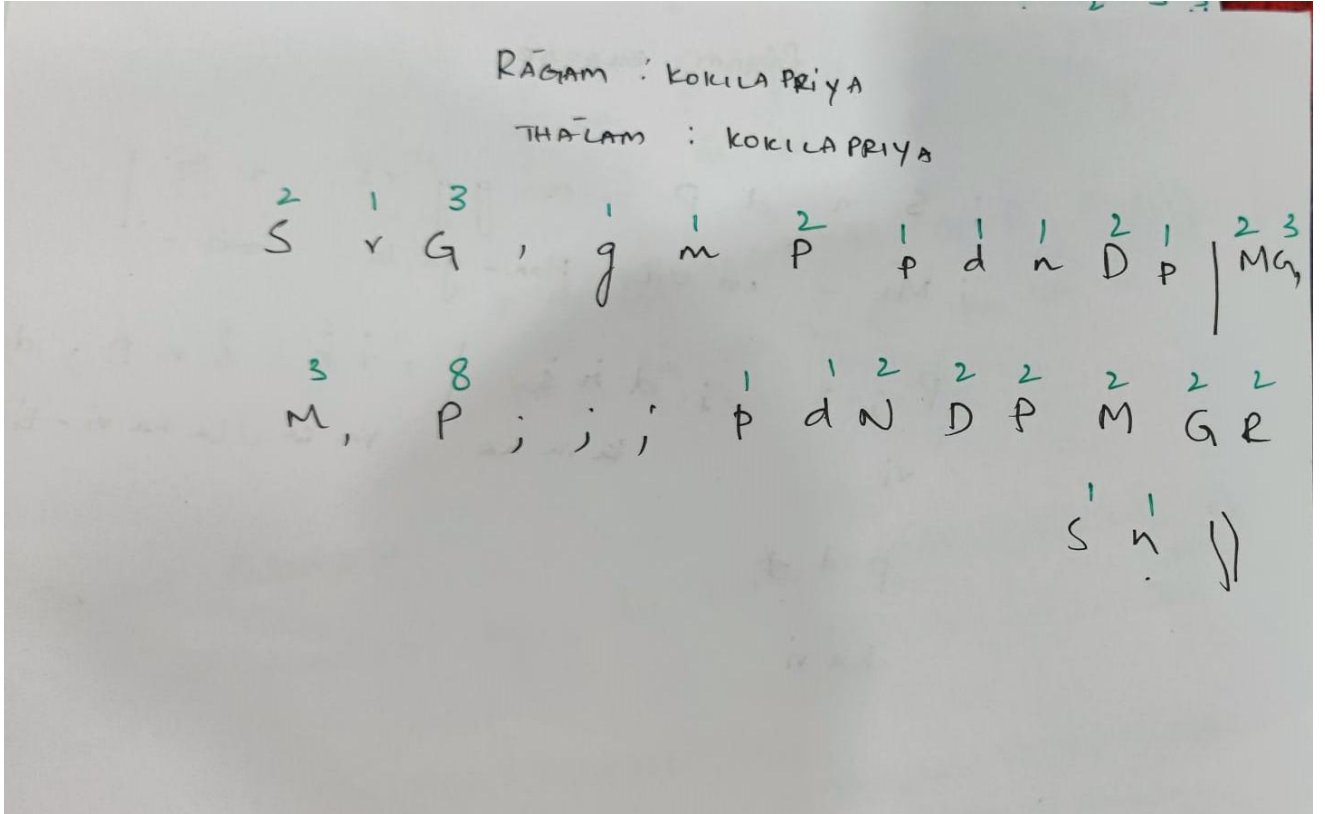 RĀGAM : KOKILAPRiYA
THĀLAM : KOKILAPRIYA
2 1 3 1 1 2 1 1 1 2 1 2 3
S r G , g m P p d n D p | MG,
3 8 1 1 2 2 2 2 2 2
M, P ; ; ; p d N D P M G R
1 1
s ṇ ||